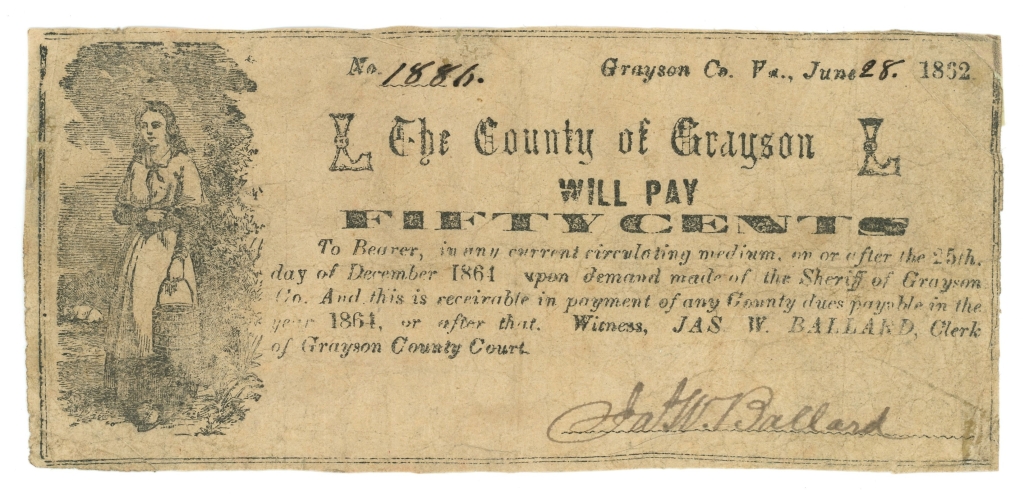 No. 1886. Grayson Co. Va., June 28. 1862
L The County of Grayson L
WILL PAY
FIFTY CENTS
To Bearer, in any current circulating medium, on or after the 25th.
day of December 1864 upon demand made of the Sheriff of Grayson
Co. And this is receivable in payment of any County dues payable in the
year 1864, or after that. Witness, JAS W. BALLARD, Clerk
of Grayson County Court.
Jas W. Ballard